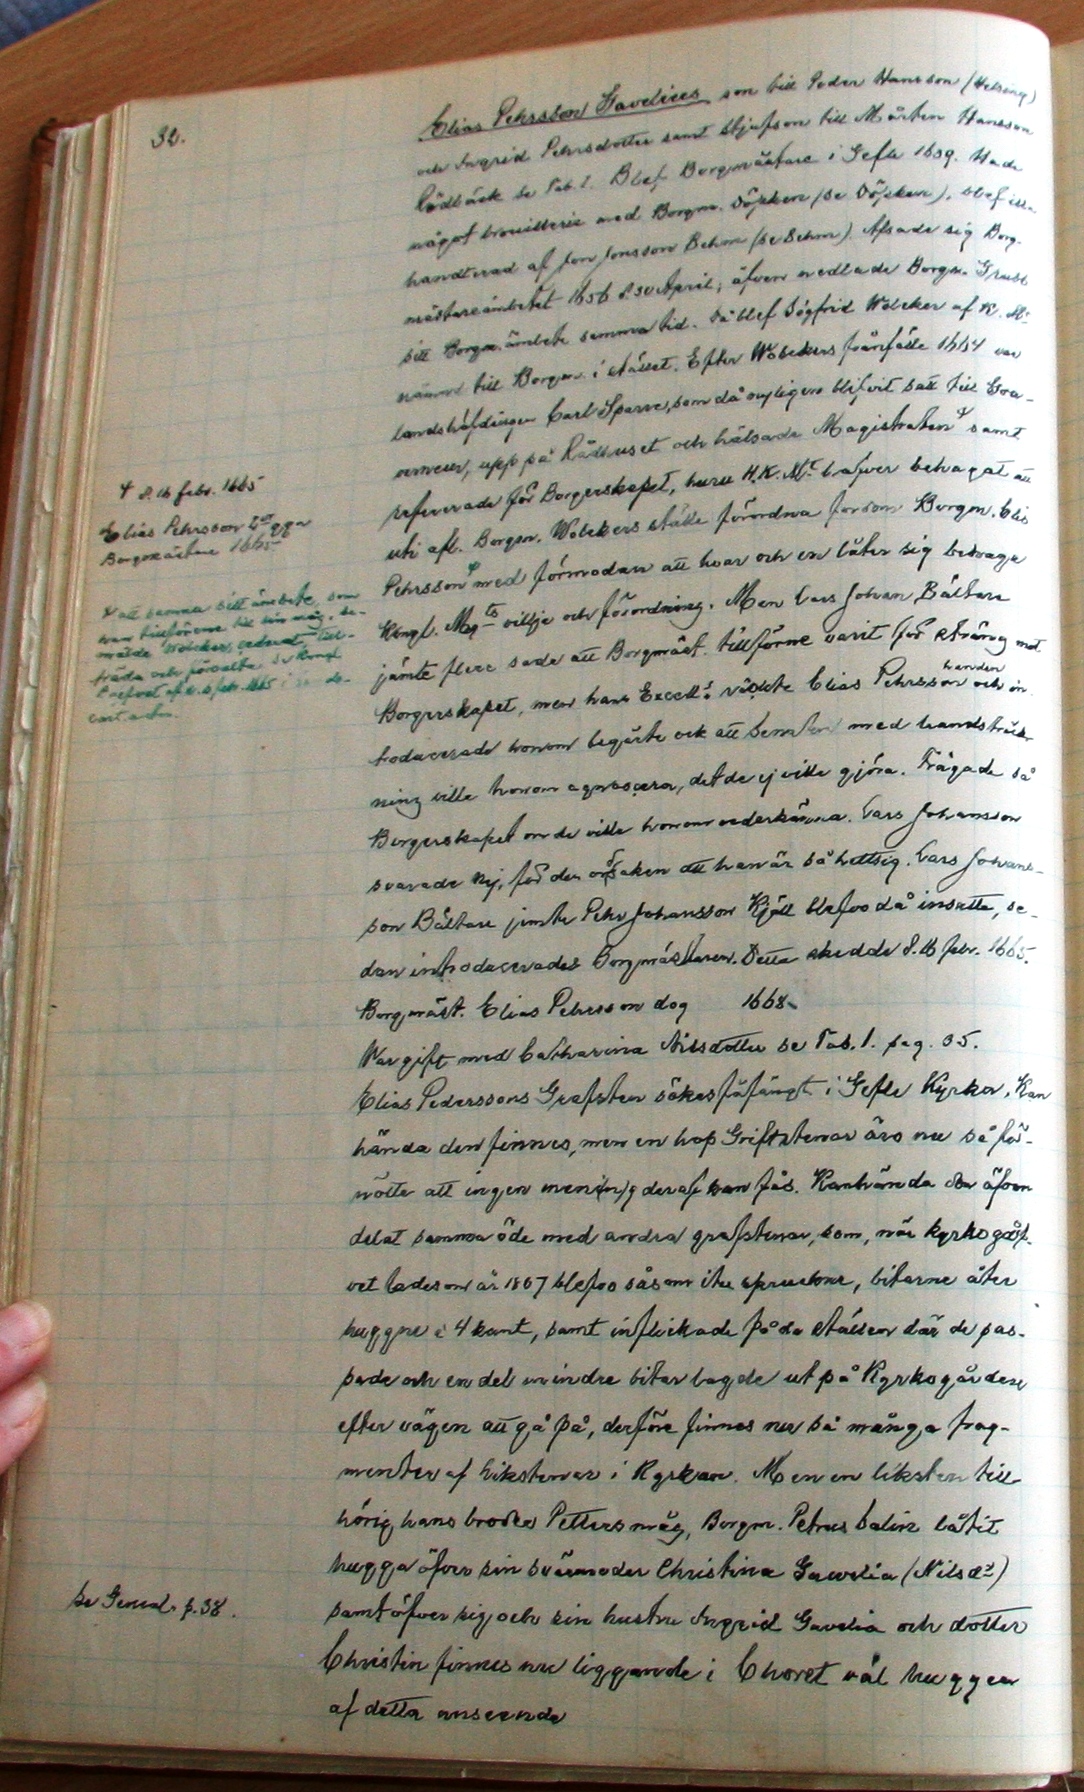 32.
Elias Pehrsson Gavelius son till Peder Hansson (Helsing)
och Ingrid Pehrsdotter samt Stjufson till Mårten Hansson
Rödbäck se Tab. 1. Blef Borgmästare i Gefle 1639. Hade
något brouillerie med Borgm. Döpken (se Döpken), blef illa
handterad af Jon Jonsson Behm (se Behm). Afsade sig Borg-
mästareämbetet 1656 d. 30 April; äfven nedlade Borgm. Grubb
sitt Borgm. ämbete samma tid. Då blef Sigfrid Wölcker af K. Mt
nämnd till Borgm. i stället. Efter Wölckers frånfälle 1664 var
landshöfdingen Carl Sparre, som då nyligen blifvit satt till Gou-
verneur, upp på Rådhuset och hälsade Magistraten ⸸ samt
refererade för Borgerskapet, huru H.K.Mt hafwer behagat att
uti afl. Borgm. Wölckers ställe förordna förrom Borgm. Elis
Pehrsson med förmodan att hvar och en låter sig behaga
Kongl. Maj:ts villje och förordning. Men Lars Johan. Bältare
jämte flere sade att Borgmäst. tillförne varit för sträng mot
Borgerskapet, men hans Excell:s räckte Elias Pehrsson handen och in-
troducerade honom begärte ock att de med handsträck-
ning ville honom agnoscera, det de ej ville gjöra. Frågade så
Borgerskapet om de ville honom vederkänna. Lars Johansson
svarade Nej, för den orsaken att han är så hettsig. Lars Johans-
son Bältare jemte Pehr Johansson Kjöll blefvo då insatte, se-
dan introducerades Borgmästaren. Detta skedde d. 16 febr. 1665.
Borgmäst. Elias Pehrsson dog 1668.
War gift med Catharina Nilsdotter se Tab. 1. pag. 35.
Elias Pederssons Grafsten sökes fåfängt i Gefle Kyrka, Kan
hända den finnes, men en hop Griftstenar äro nu så för-
nötte att ingen mening deraf kan fås. Kanhända den äfven
delat samma öde med andra grafstenar, som, när kyrkogolf-
vet lades om år 1807 blefvo såsom itu spruckne, bitarne åter
huggne i 4 kant, samt inflickade på de ställen där de pas-
sade och en del mindre bitar lagde ut på Kyrkogården
efter vägen att gå på, derföre finnes nu så många frag-
menter af Likstenar i Kyrkan. Men en liksten till-
hörig hans broder Petters måg, Borgm. Petrus Salin låtit
hugga öfver sin svärmoder Christina Gavelia (Nilsdr)
samt öfver sig och sin hustru Ingrid Gavelia och dotter
Christin finnes nu liggande i Choret väl huggen
af detta anseende
⸸ d. 16 febr. 1665
Elias Pehrsson 2dra gga
Borgmästare 1665
att samma sitt ämbete, som
han tillförene till sin måg, be-
mälde Wölcker, cederat, till-
träda och förvalta
af d. 6 febr. 1665
se Geneal. p. 38.